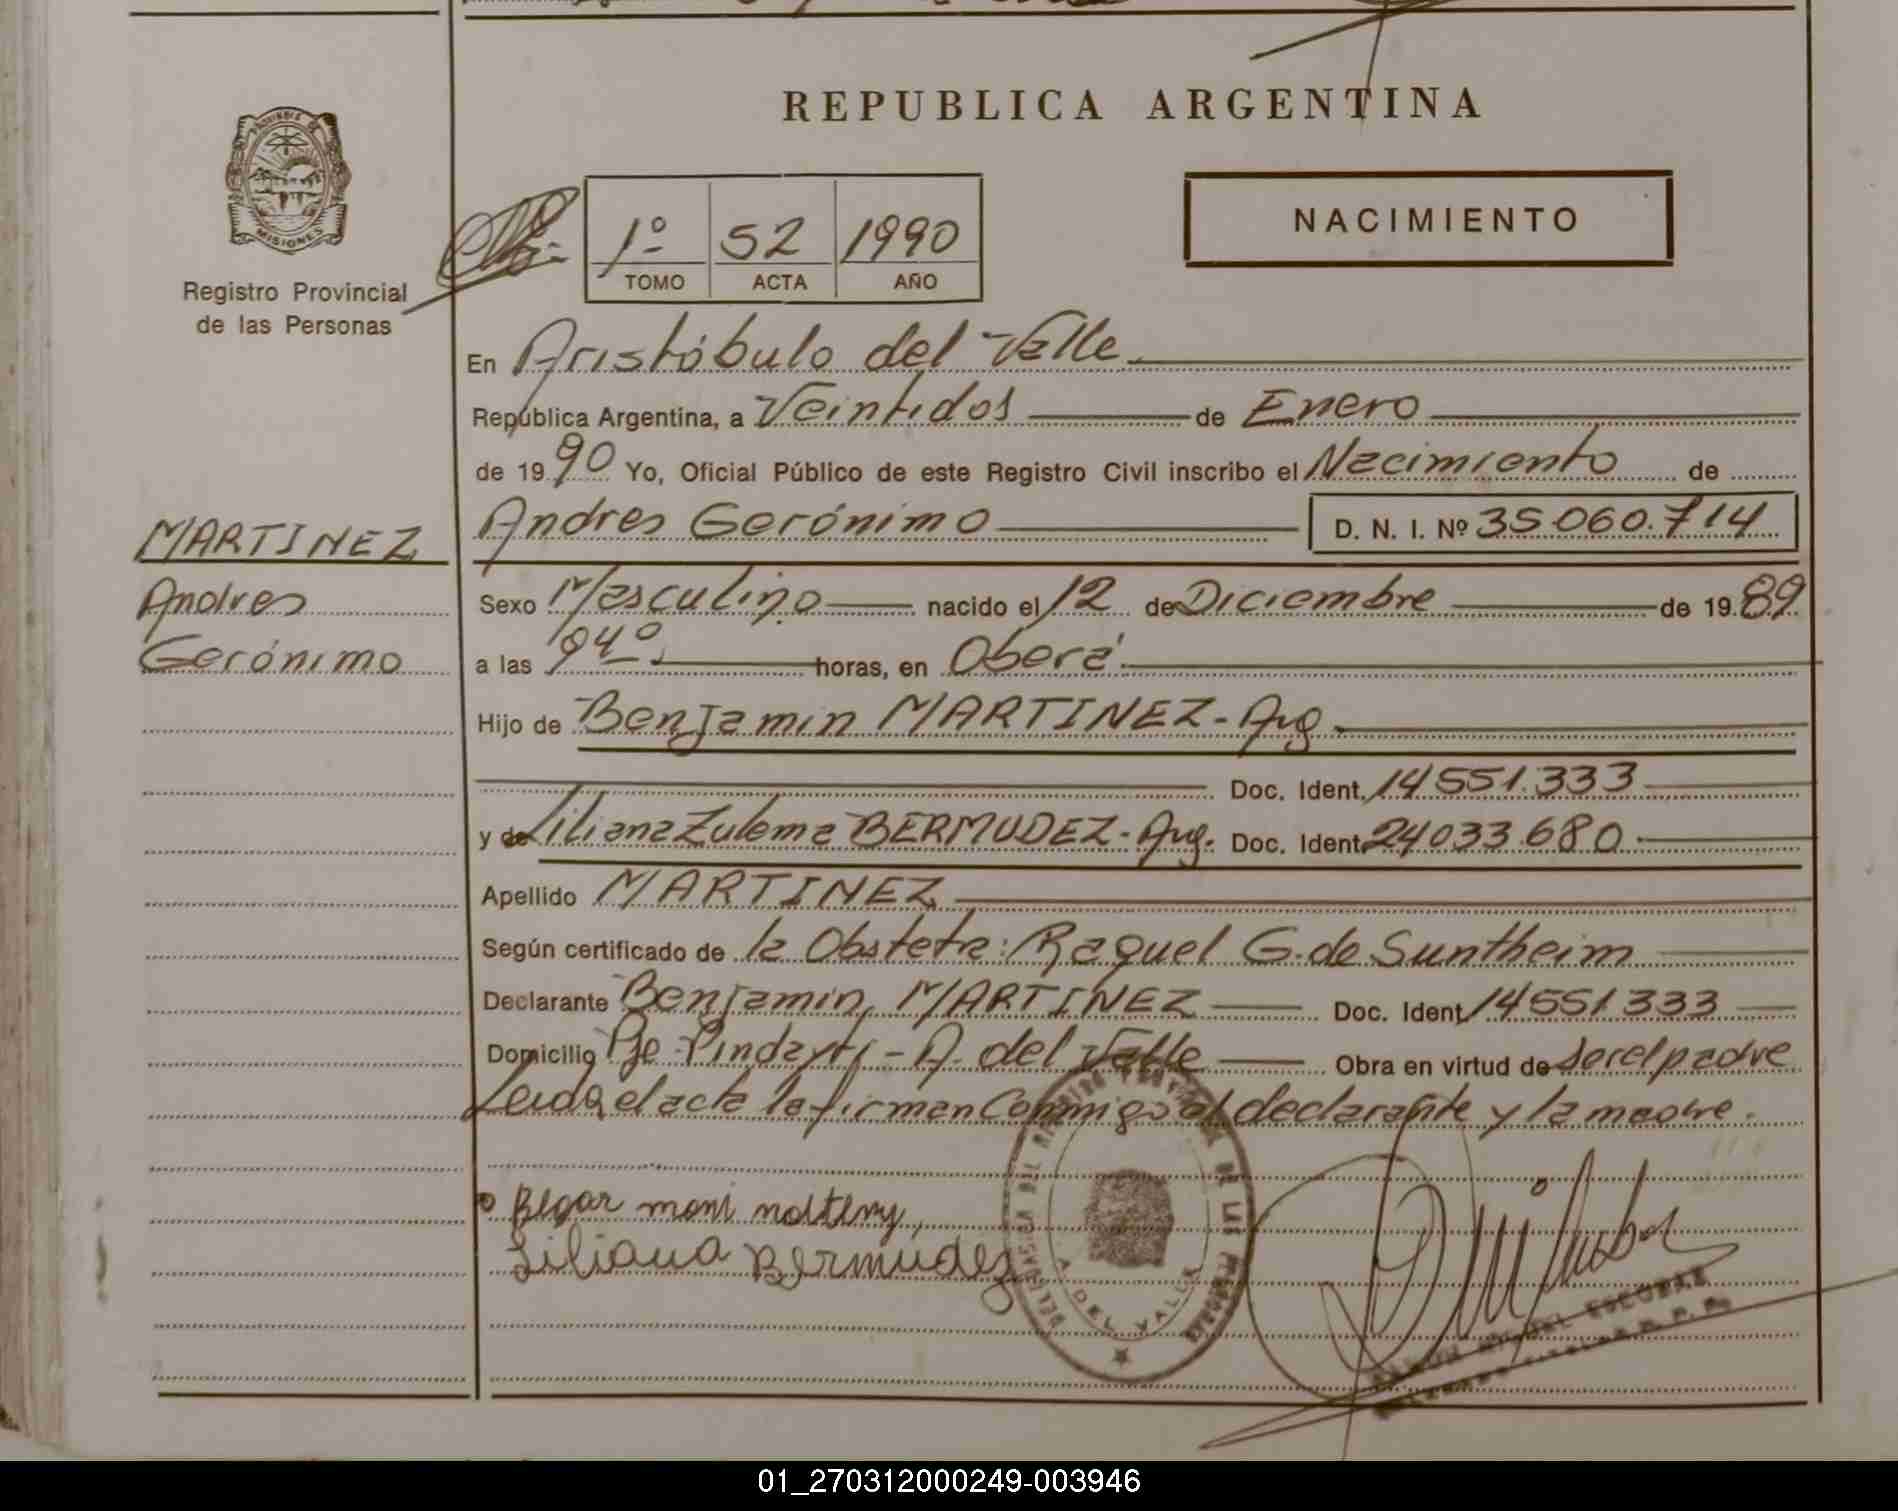 REPUBLICA ARGENTINA
PROVINCIA DE
MISIONES
Registro Provincial
de las Personas
1º 52 1990
TOMO ACTA AÑO
NACIMIENTO
En Aristóbulo del Valle
República Argentina, a Veintidos de Enero
de 1990 Yo, Oficial Público de este Registro Civil inscribo el Nacimiento de
MARTINEZ
Andres
Gerónimo
Andres Gerónimo D. N. I. Nº 35.060.714
Sexo Masculino nacido el 12 de Diciembre de 1989
a las 04º horas, en Oberá
Hijo de Benjamin MARTINEZ - Arg
Doc. Ident. 14551.333
y de Liliana Zulema BERMUDEZ - Arg. Doc. Ident. 24033.680
Apellido MARTINEZ
Según certificado de la Obstetra: Raquel G. de Suntheim
Declarante Benjamin MARTINEZ Doc. Ident. 14551333
Domicilio Pje Pindayti - A. del Valle Obra en virtud de ser el padre
Leida el acta la firman Conmigo el declarante y la madre.
Liliana Bermudez
A. DEL VALLE
DE LAS PERSONAS
ESCOBAR
01_270312000249-003946